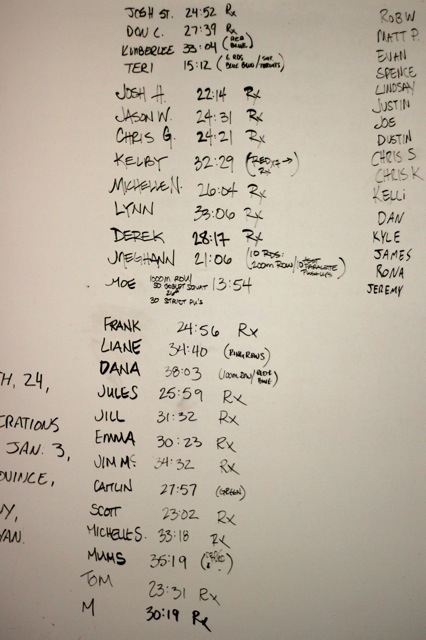 JOSH ST. 24:52 Rx
DON C. 27:39 Rx
KIMBERLEE 33:04 (RED/BLUE)
TERI 15:12 (6 RDS
JOSH H. 22:14 Rx
JASON W. 24:31 Rx
CHRIS G. 24:21 Rx
KELBY 32:29 (RED, Rx)
MICHELLE N. 26:04 Rx
LYNN 33:06 Rx
DEREK 28:17 Rx
MEGHANN 21:06 (10 RDS:
200M ROW/10
MOE 13:54
1000M ROW/
50 GOBLET SQUAT
30 STRICT PU'S
FRANK 24:56 Rx
LIANE 34:40 (RING ROWS)
DANA 38:03 (1000M ROW/
BLUE)
JULES 25:59 Rx
JILL 31:32 Rx
EMMA 30:23 Rx
JIM Mc 34:32 Rx
CAITLIN 27:57 (GREEN)
SCOTT 23:02 Rx
MICHELLE S. 33:18 Rx
MUMS 35:19
TOM 23:31 Rx
M 30:19 Rx
ROB W
MATT P.
EVAN
SPENCE
LINDSAY
JUSTIN
JOE
DUSTIN
CHRIS S
CHRIS K
KELLI
DAN
KYLE
JAMES
RONA
JEREMY
TH, 24,
CRATIONS
JAN. 3,
OVINCE,
NY,
YAN.